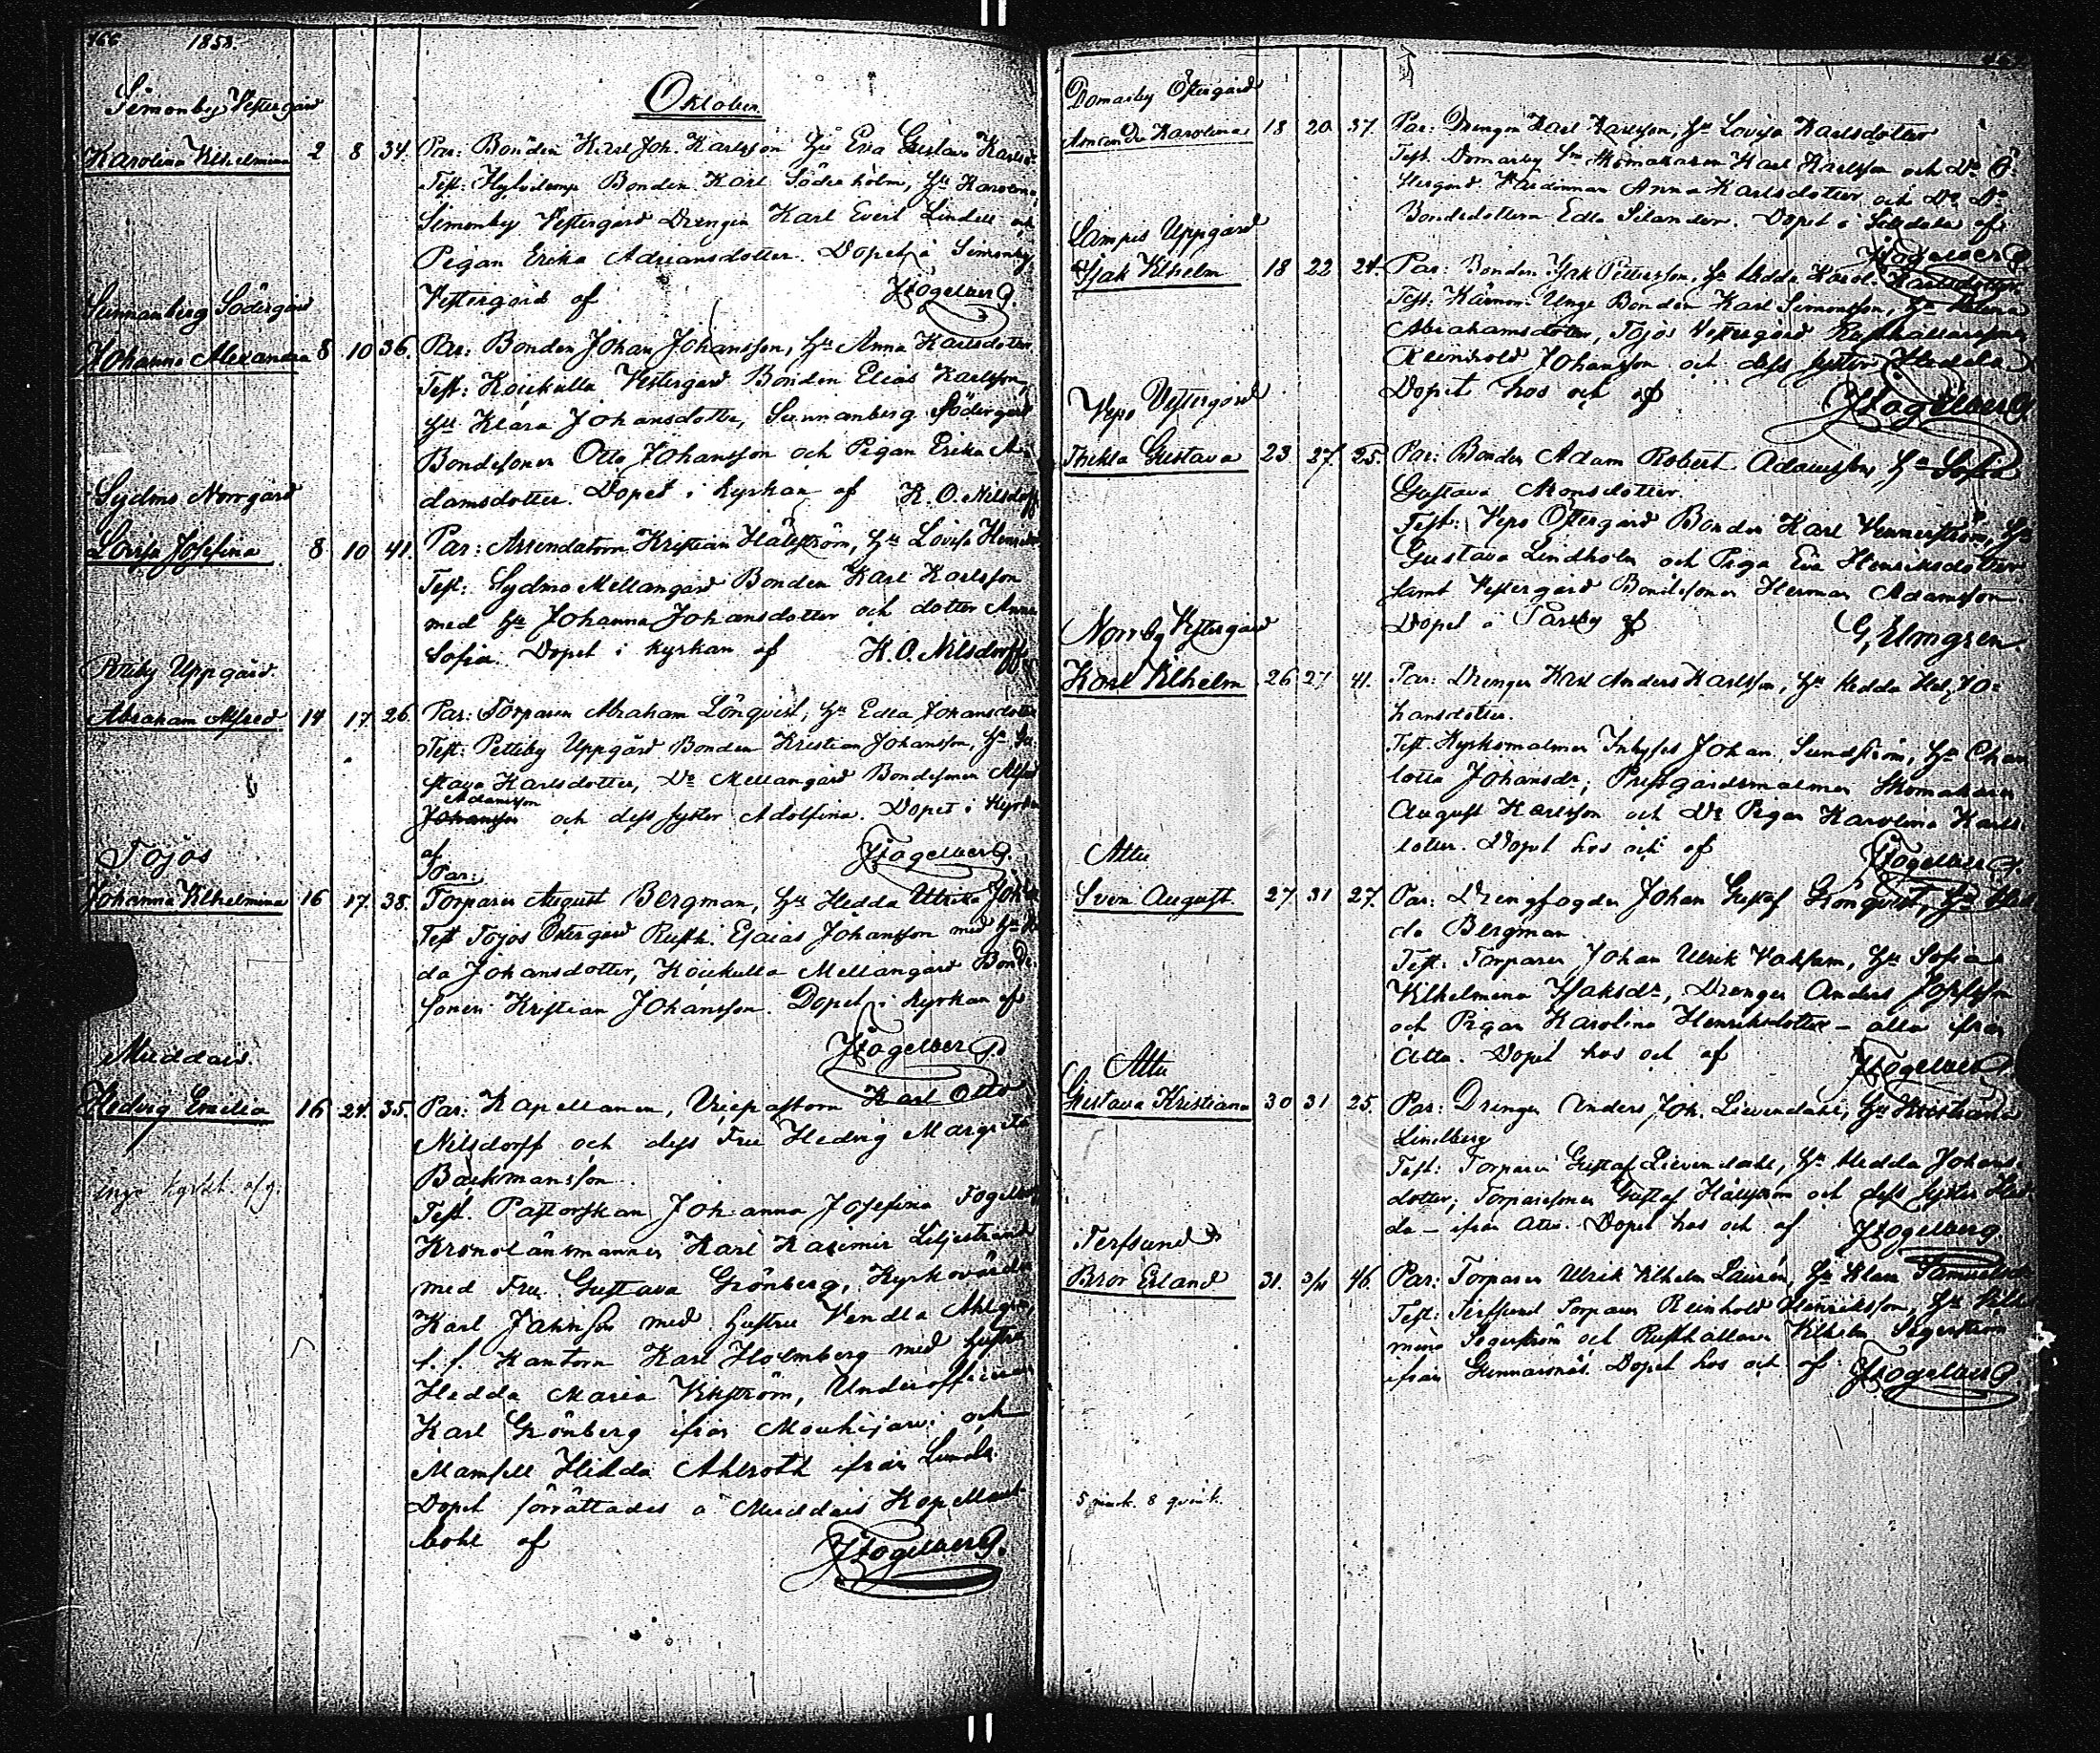 166 1858.
Oktober
Simonby Vestergård
Karolina Vilhelmina 2 8 34. Par: Bonden Karl Joh. Karlsson Hu Eva Gustava Karlsd
Test: Bonden Karl Söderholm, Hu Karolina
Simonby Vestergård Drengen Karl Evert Lindell och
Pigan Erika Adriansdotter. Dopet i Simonby
Vestergård af JFogelberg.
Sunnanberg Södergård
Johanna Alexandra 8 10 36. Par: Bonden Johan Johansson, Hu Anna Karlsdotter
Test: Koickulla Vestergård Bonden Elias Karlsson,
Hu Klara Johansdotter, Sunnanberg Södergård
Bondesonen Otto Johansson och Pigan Erika A-
damsdotter. Dopet i kyrkan af K. O. Nilsdorff
Sydmo Norrgård
Lovisa Josefina 8 10 41. Par: Arrendatorn Kristian Hälström, Hu Lovisa
Test: Sydmo Mellangård Bonden Karl Karlsson
med Hu Johanna Johansdotter och dotter Anna
Sofia. Dopet i kyrkan af K. O. Nilsdorff
Uppgård.
Abraham Alfred 14 17. 26. Par: Torparen Abraham Lönqvist, Hu Edla Johansdotter
Test: Petteby Uppgård Bonden Kristian Johansson, Hu Gu-
stava Karlsdotter, Do Mellangård Bondesonen Alfred
Adamsson
Johansson och dess syster Adolfina. Dopet i kyrkan
af JFogelberg.
Tojos Par:
Johanna Vilhelmina 16 17. 38. Torparen August Bergman, Hu Hedda Ulrika
Test Tojos Östergård Rusth. Esaias Johansson med Hu
da Johansdotter, Koickulla Mellangård Bonde-
sonen Kristian Johansson. Dopet i kyrkan af
JFogelberg.
Muddais.
Hedvig Emilia 16 24. 35. Par: Kapellanen, Vicepastorn Karl Otto
Nilsdorff och dess Fru Hedvig Margreta
Backmansson.
Test. Pastorskan Johanna Josefina Fogelberg
Kronolänsmannen Karl Kasimir Liljestrand
med Fru Gustava Grönberg, Kyrkovärden
Karl Jaknson med hustru Vendla Ahlgren,
t. f. Kantorn Karl Holmberg med hustru
Hedda Maria Vikström, Underofficeren
Karl Grönberg ifrån Mouhijärvi och
Mamsell Hilda Ahlroth ifrån
Dopet förrättades å Muddais Kapellans
bohl af JFogelberg.
Domarby Östergård
Amanda Karolina 18 20 37. Par: Drengen Karl Karlsson, Hu Lovisa Karlsdotter
Test. Domarby Skomakaren Karl Karlsson och Do Ö-
stergård Anna Karlsdotter och Do Do
Bondedottern Edla Selander. Dopet i af
JFogelberg.
Lampis Uppgård
Isak Vilhelm 18 22 24. Par: Bonden Isak Pettersson, Hu Hedda Karol. Karlsdotter
Test: Unge Bonden Karl Simonsson, Hu Helena
Abrahamsdotter, Tojos Vestergård Rusthållaresonen
Reinhold Johansson och dess syster Hedda
Dopet hos och af JFogelberg.
Vepo Vestergård
Thekla Gustava 23 27. 25. Par: Bonden Adam Robert Adamsson, Hu Sofia
Gustava Monsdotter.
Test: Vepo Östergård Bonden Karl Vennerström, Hu
Gustava Lindholm och Piga Eva Henriksdotter
samt Vestergård Bondesonen Herman Adamsson
Dopet i Parsby af G, Elmgren
Norrby Vestergård
Karl Vilhelm 26 27 41. Par: Drengen Karl Anders Karlsson, Hu Hedda Hel. Jo-
hansdotter.
Test. Kyrksmalmen Inhyses Johan Sundström, Hu Char
lotta Johansdr; Prestgårdsmalmen Skomakaren
August Karlsson och Do Pigan Karolina Karls-
dotter. Dopet hos och af JFogelberg.
Attu
Sven August. 27 31 27. Par: Drengfogden Johan Gustaf Grönqvist, Hu Hed
da Bergman
Test. Torparen Johan Ulrik Hu Sofia
Vilhelmina Isaksdr, Drengen Anders Josefsson
och Pigan Karolina Henriksdotter – alla ifrån
Attu. Dopet hos och af JFogelberg
Attu
Gustava Kristiana 30 31 25. Par: Drengen Anders Joh. Lievendahl, Hu Kristiana
Lindberg
Test: Torparen Gustaf Lievendahl, Hu Hedda Johans-
dotter; Torparesonen Gustaf Hälström och dess syster Hed-
da – ifrån Attu. Dopet hos och af JFogelberg
Terfsund
Bror Erland 31. 46. Par: Torparen Ulrik Vilhelm Laurén, Hu Klara
Test: Terfsund Torparen Reinhold Henriksson, Hu Vilhel
mina Segerström och Rusthållaren Vilhelm Segerström
ifrån Gunnarsnäs. Dopet hos och af JFogelberg.